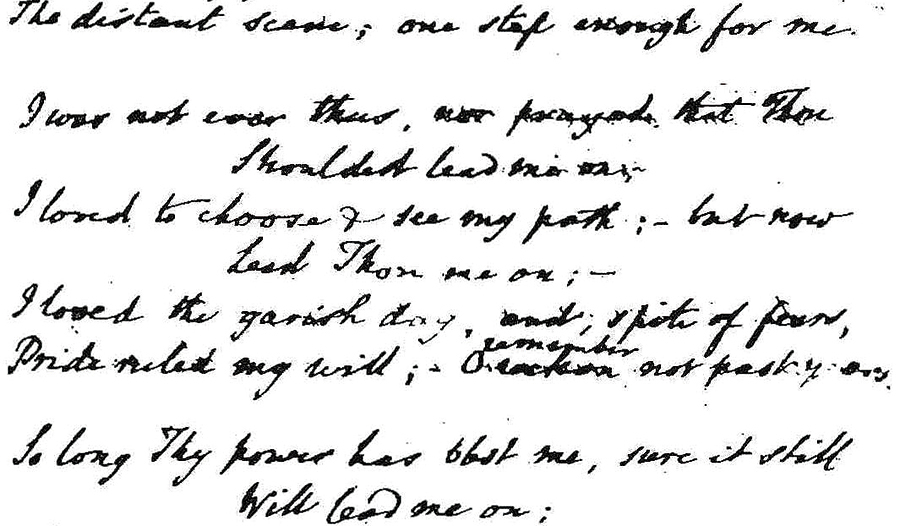 The distant scene; one step enough for me.
I was not ever thus, nor prayed that Thou
Shouldst lead me on;-
I loved to choose & see my path; - but now
Lead Thou me on; -
I loved the garish day, and, spite of fears,
remember
Pride ruled my will; - not past years.
So long Thy power has blest me, sure it still
Will lead me on;